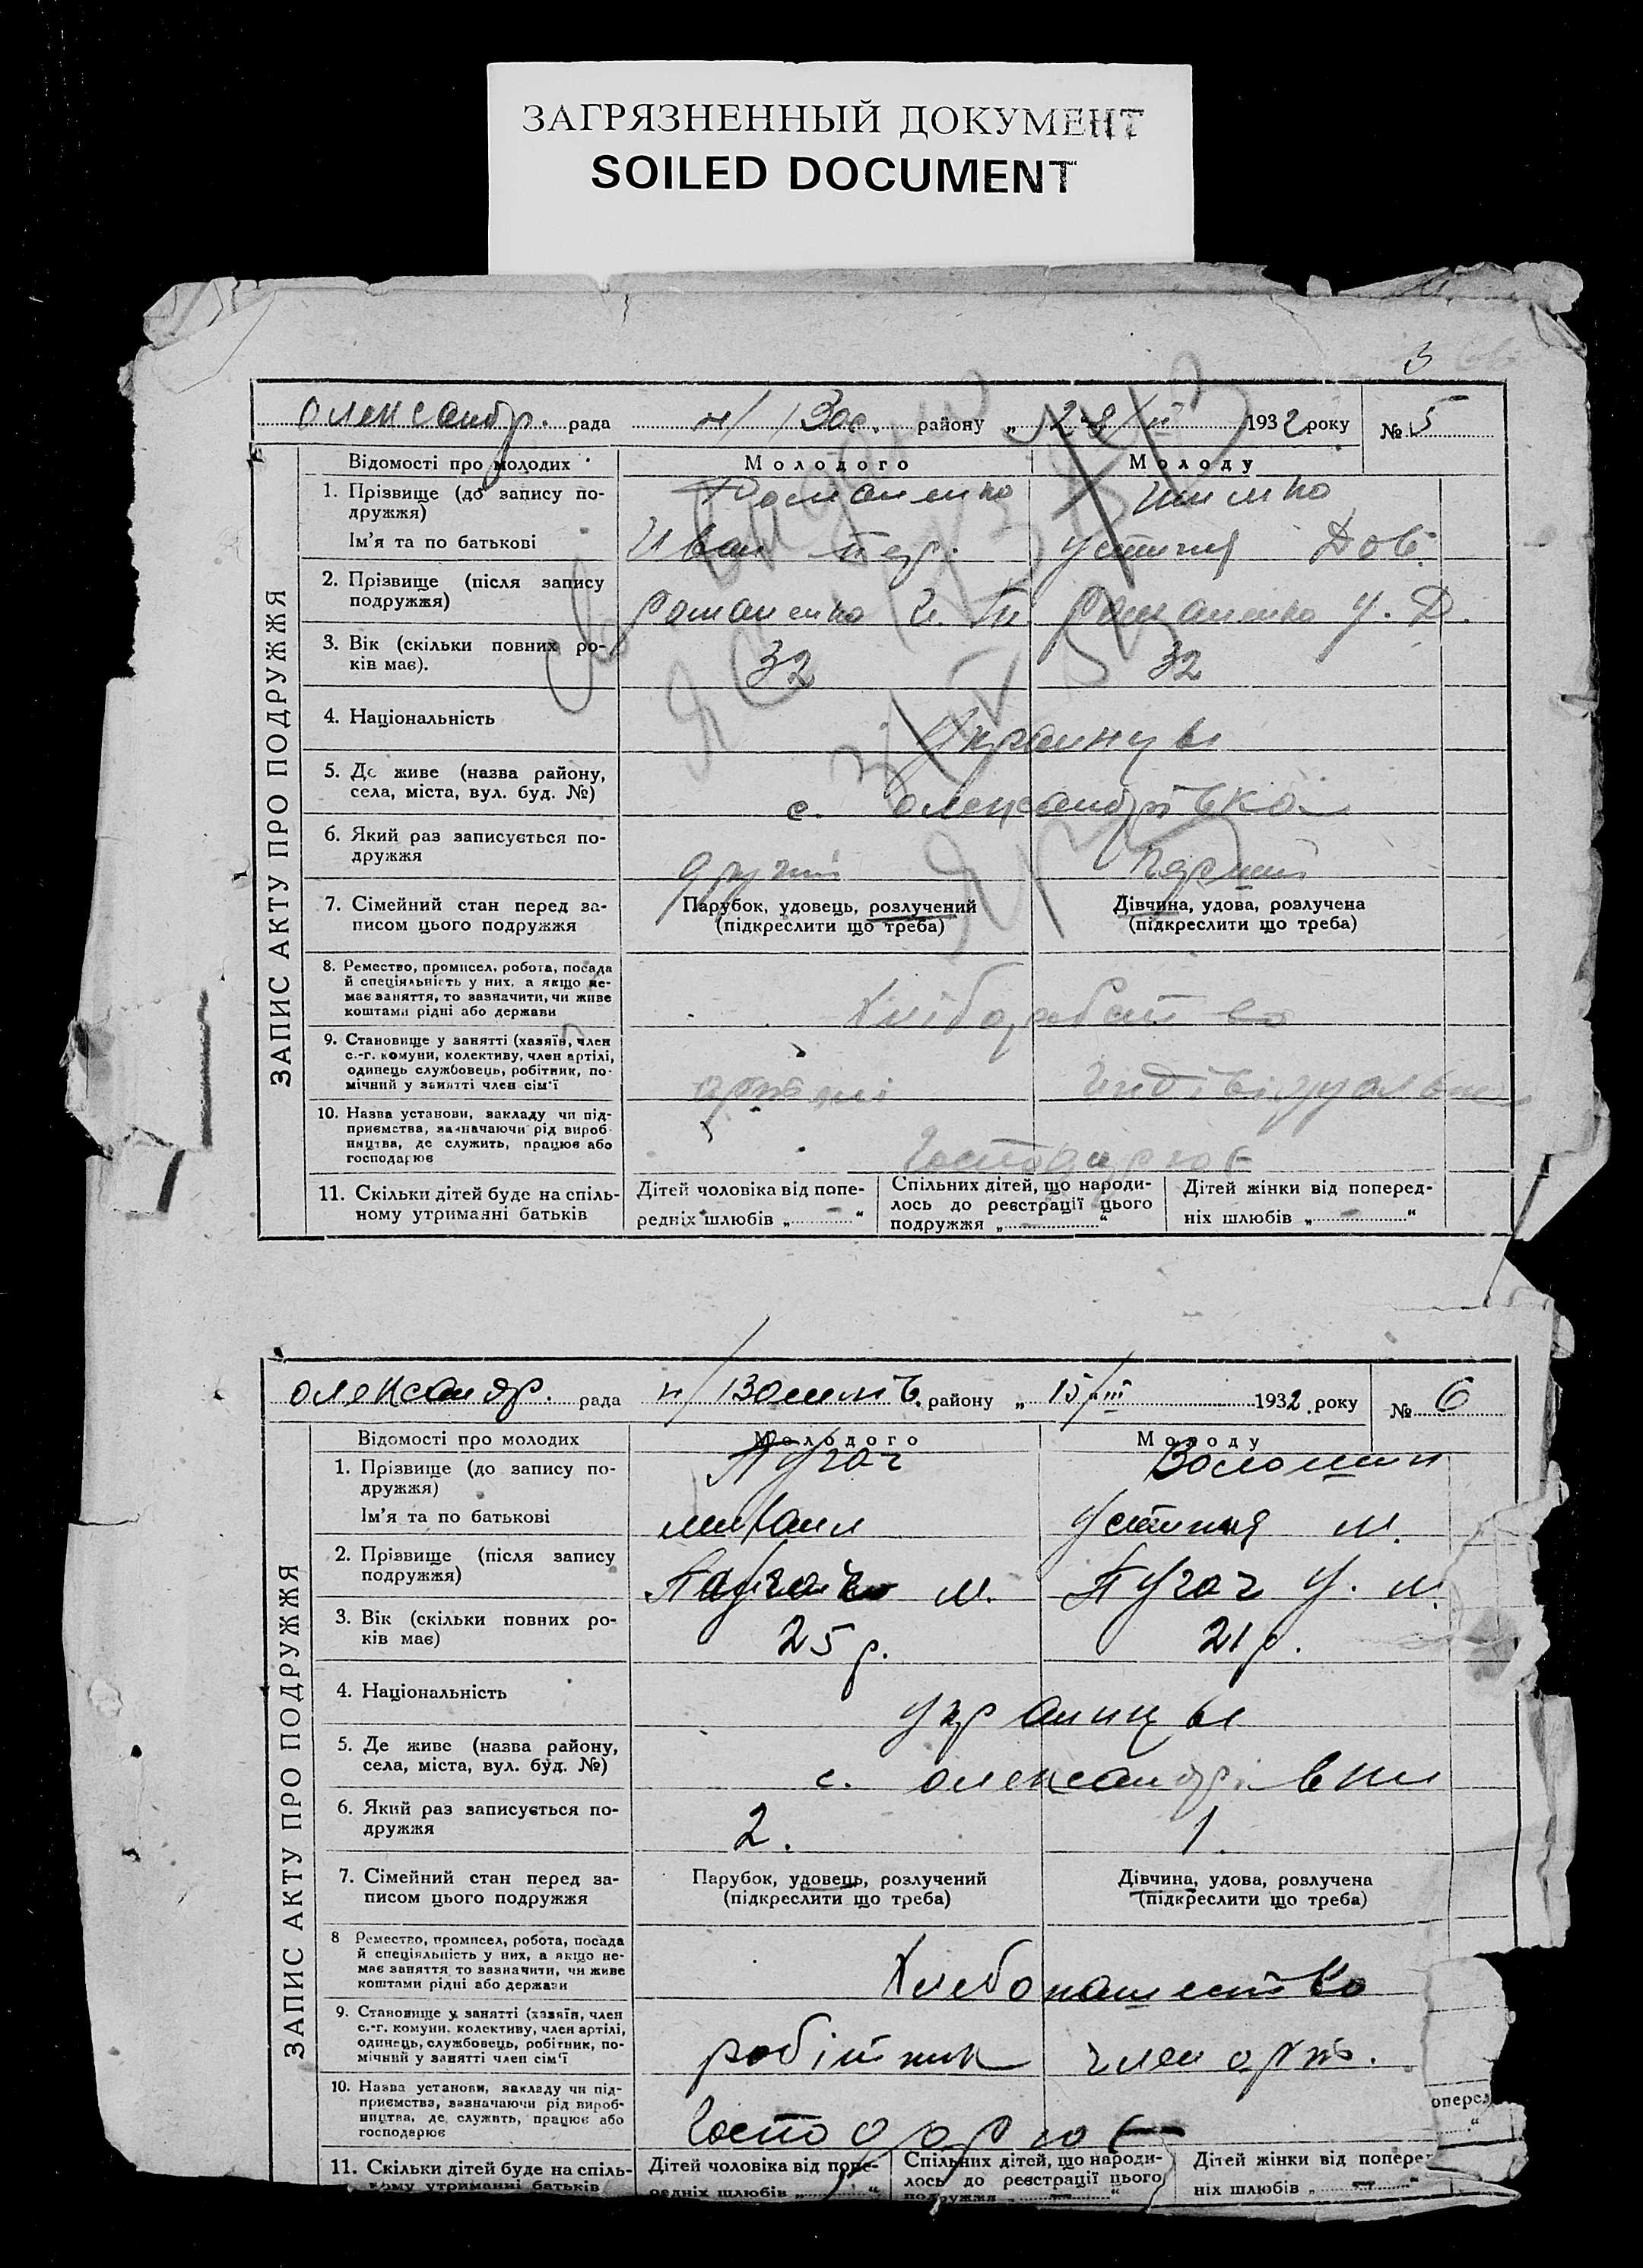 ЗАГРЯЗНЕННЫЙ ДОКУМЕНТ
SOILED DOCUMENT
3
Олександр. рада н/ району „ 28/II 1932 року № 5
ЗАПИС АКТУ ПРО ПОДРУЖЖЯ
Відомості про молодих Молодого Молоду
1. Прізвище (до запису по-
дружжя) Романенко
Ім'я та по батькові Иван Устиния
2. Прізвище (після запису
подружжя) Романенко Романенко У. Д.
3. Вік (скільки повних ро-
ків має). 32 32
4. Національність Украинцы
5. Де живе (назва району,
села, міста, вул. буд. №) с. Олександрівка
6. Який раз записується по-
дружжя другий перший
7. Сімейний стан перед за-
писом цього подружжя
Парубок, удовець, розлучений
(підкреслити що треба)
Дівчина, удова, розлучена
(підкреслити що треба)
8. Ремество, промисел, робота, посада
й спеціяльність у них, а якщо не-
має заняття, то зазначити, чи живе
коштами рідні або держави
9. Становище у занятті (хазяїн, член
с.-г. комуни, колективу, член артілі,
одинець службовець, робітник, по-
мічний у занятті член сім'ї
10. Назва установи, закладу чи під-
приємства, зазначаючи рід вироб-
ництва, де служить, працює або
господарює Господарює
11. Скільки дітей буде на спіль-
ному утриманні батьків
Дітей чоловіка від попе-
редніх шлюбів „ - “
Спільних дітей, що народи-
лось до реєстрації цього
подружжя „ - “
Дітей жінки від поперед-
ніх шлюбів „ - “
Олександр. рада н/Волинь району „ 15/III 1932 року № 6
ЗАПИС АКТУ ПРО ПОДРУЖЖЯ
Відомості про молодих Молодого Молоду
1. Прізвище (до запису по-
дружжя) Пугач Волошин
Ім'я та по батькові Михаил Устиния М.
2. Прізвище (після запису
подружжя) М. Пугач У. М.
3. Вік (скільки повних ро-
ків має) 25 р. 21 р.
4. Національність Украинцы
5. Де живе (назва району,
села, міста, вул. буд. №) с. Олександрівки
6. Який раз записується по-
дружжя 2. 1.
7. Сімейний стан перед за-
писом цього подружжя
Парубок, удовець, розлучений
(підкреслити що треба)
Дівчина, удова, розлучена
(підкреслити що треба)
8 Ремество, промисел, робота, посада
й спеціяльність у них, а якщо не-
має заняття то зазначити, чи живе
коштами рідні або держави Хлебопашество
9. Становище у занятті (хазяїн, член
с.-г. комуни, колективу, член артілі,
одинець, службовець, робітник, по-
мічний у занятті член сім'ї робітник член арт.
10. Назва установи, закладу чи під-
приємства, зазначаючи рід вироб-
ництва, де служить, працює або
господарює Господарює
оперед
“
11. Скільки дітей буде на спіль-
ному утриманні батьків
Дітей чоловіка від попе-
редніх шлюбів „ “
Спільних дітей, що народи-
лось до реєстрації цього
подружжя „ - “
Дітей жінки від попере
ніх шлюбів „ - “